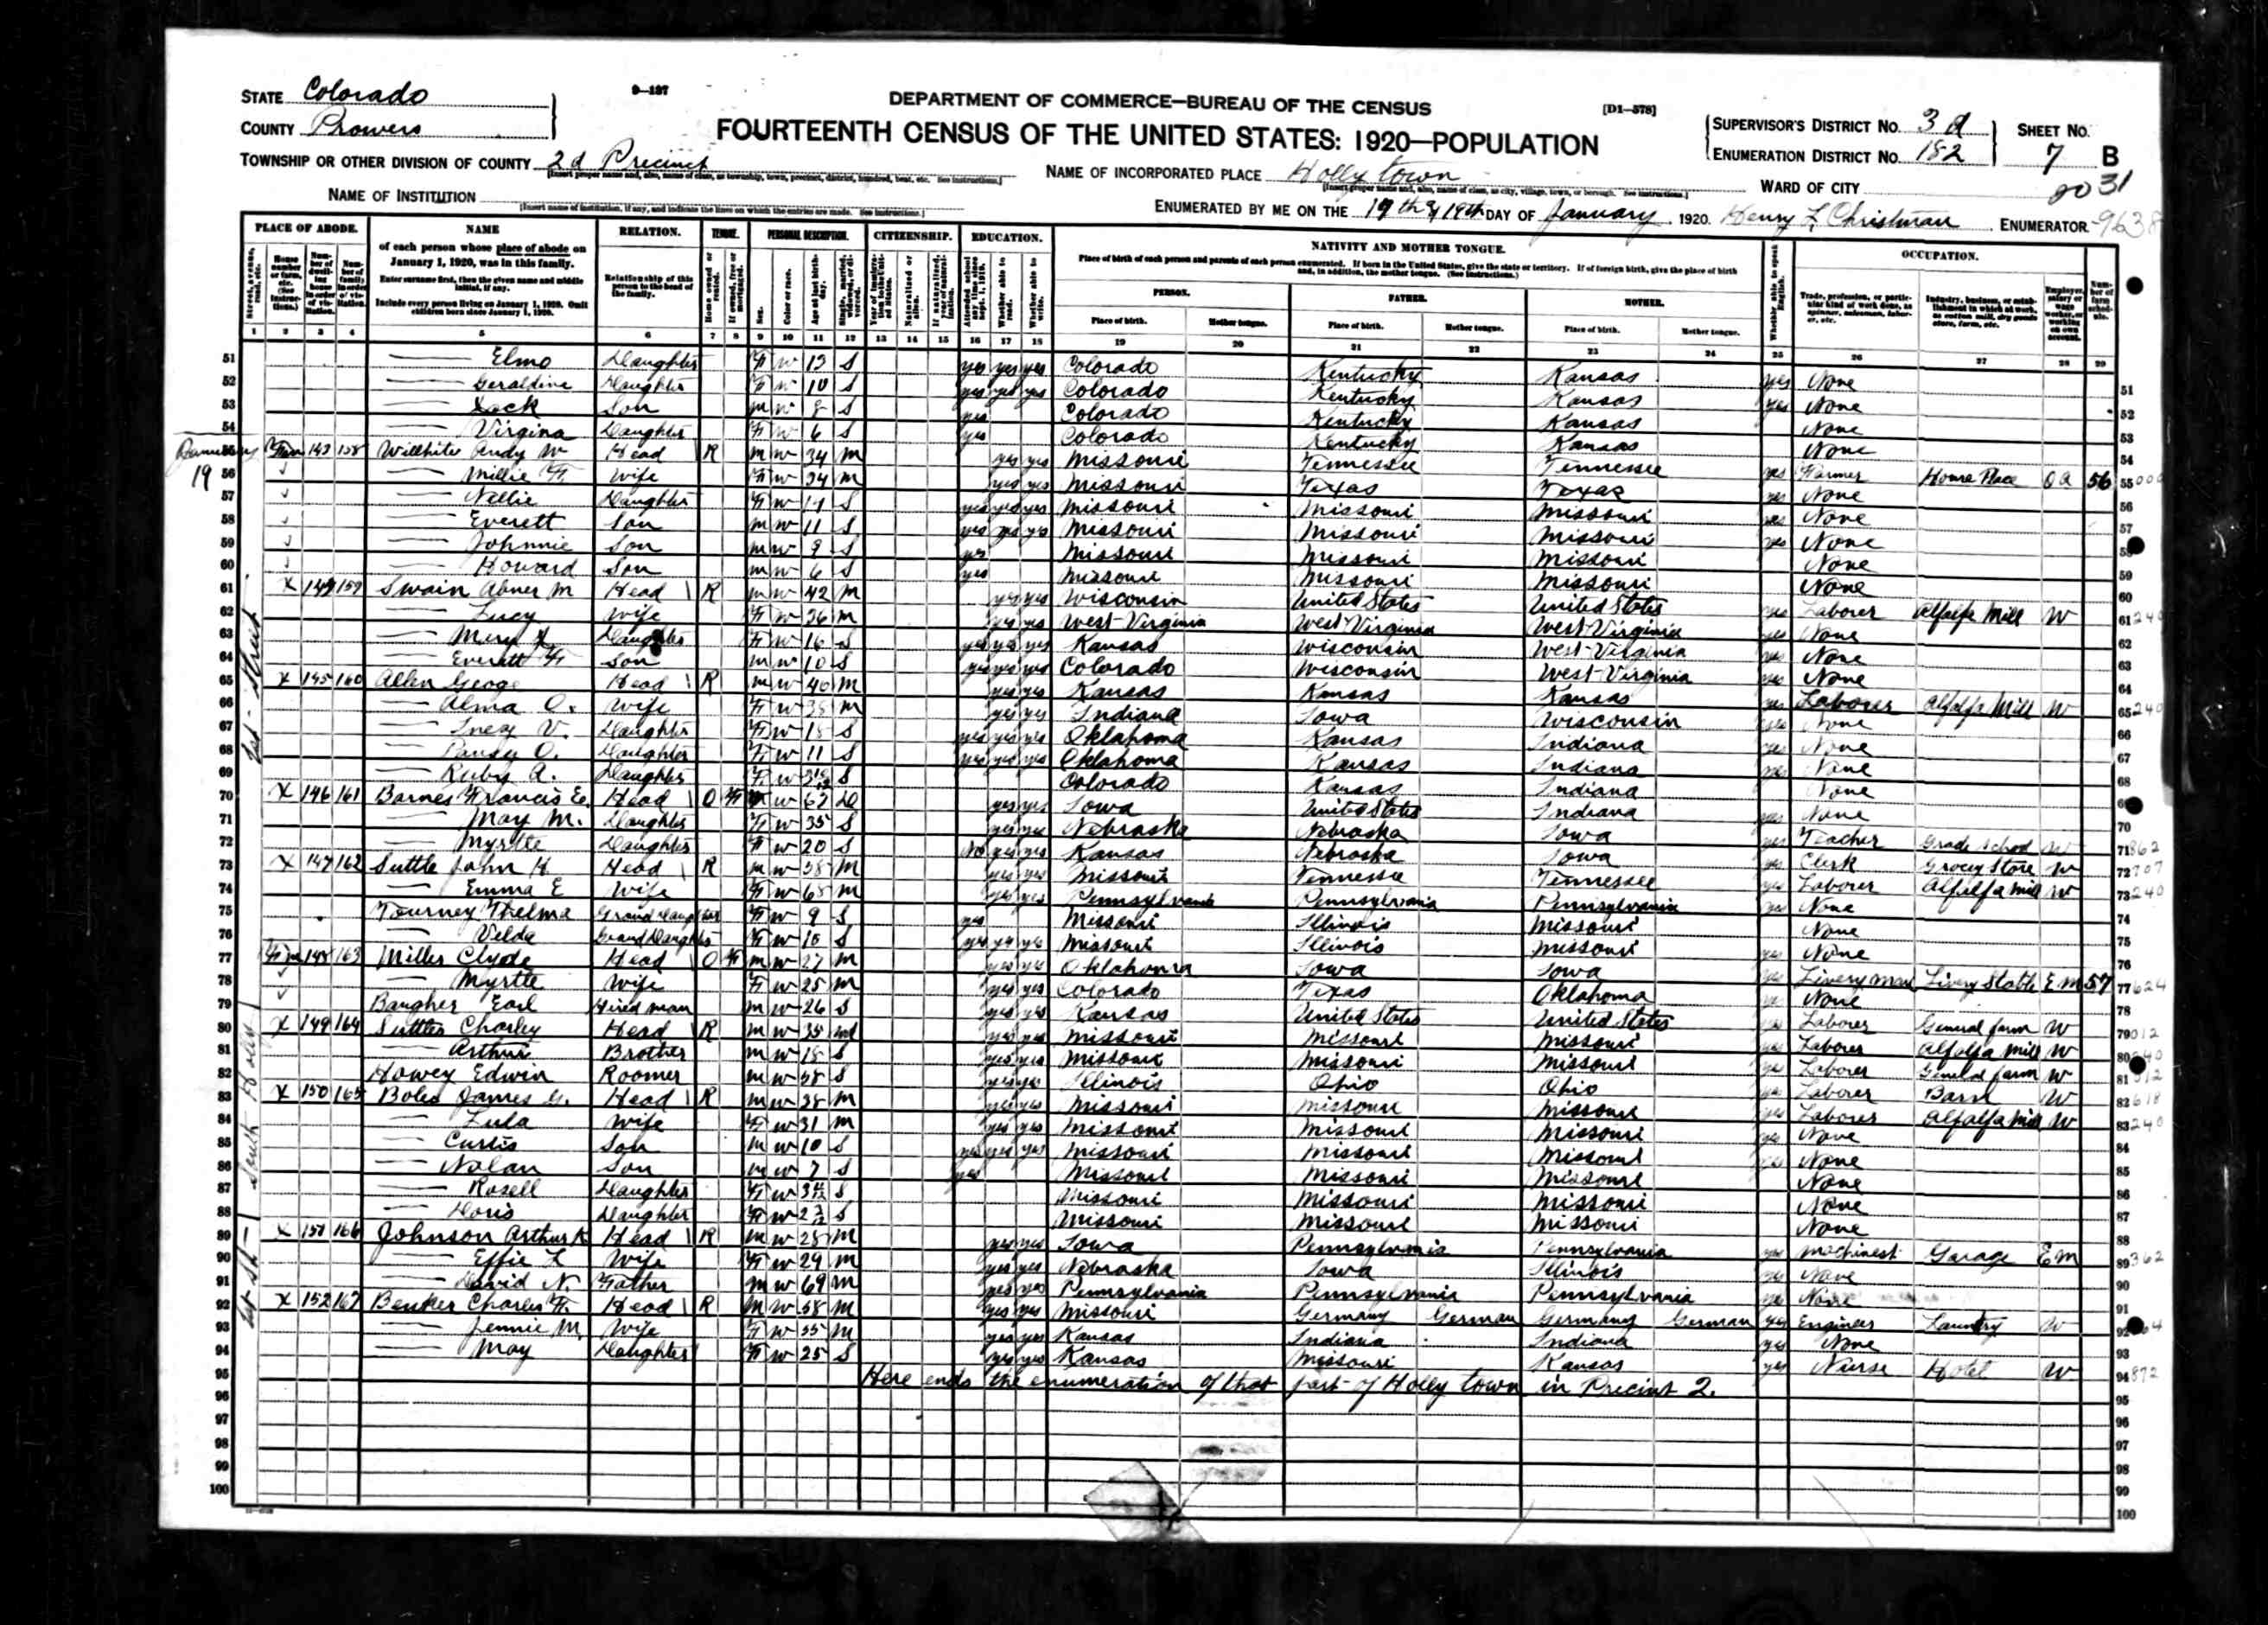 STATE Colorado
9—137
DEPARTMENT OF COMMERCE—BUREAU OF THE CENSUS
[D1—578]
COUNTY Prowers
FOURTEENTH CENSUS OF THE UNITED STATES: 1920—POPULATION
SUPERVISOR'S DISTRICT No. 3d
SHEET No.
ENUMERATION DISTRICT No. 182
7 B
TOWNSHIP OR OTHER DIVISION OF COUNTY 2d Precinct
NAME OF INCORPORATED PLACE Holly town
WARD OF CITY
2031
NAME OF INSTITUTION
ENUMERATED BY ME ON THE 17th & 19th DAY OF January, 1920. Henry L. Christman ENUMERATOR
PLACE OF ABODE. NAME RELATION. TENURE. PERSONAL DESCRIPTION. CITIZENSHIP. EDUCATION. NATIVITY AND MOTHER TONGUE. OCCUPATION.
of each person whose place of abode on January 1, 1920, was in this family.
Enter surname first, then the given name and middle initial, if any.
Include every person living on January 1, 1920. Omit children born since January 1, 1920.
Relationship of this person to the head of the family.
Place of birth of each person and parents of each person enumerated. If born in the United States, give the state or territory. If of foreign birth, give the place of birth and, in addition, the mother tongue. (See Instructions.)
PERSON. FATHER. MOTHER.
Place of birth. Mother tongue. Place of birth. Mother tongue. Place of birth. Mother tongue.
1 2 3 4 5 6 7 8 9 10 11 12 13 14 15 16 17 18 19 20 21 22 23 24 25 26 27 28 29
51 — Elmo Daughter F W 13 S yes yes yes Colorado Kentucky Kansas yes None
52 — Geraldine Daughter F W 10 S yes yes yes Colorado Kentucky Kansas yes None
53 — Jack Son M W 8 S yes Colorado Kentucky Kansas None
54 — Virgina Daughter F W 6 S yes Colorado Kentucky Kansas None
January 19
55 Fm 143 158 Willhite Andy W Head R M W 34 M yes yes Missouri Tennessee Tennessee yes Farmer Home Place OA 56
56 — Millie F. Wife F W 34 M yes yes Missouri Texas Texas yes None
57 — Nellie Daughter F W 14 S yes yes yes Missouri Missouri Missouri yes None
58 — Everett Son M W 11 S yes yes yes Missouri Missouri Missouri yes None
59 — Johnnie Son M W 9 S yes Missouri Missouri Missouri None
60 — Howard Son M W 6 S yes Missouri Missouri Missouri None
61 X 144 159 Swain Abner M Head R M W 42 M yes yes Wisconsin United States United States yes Laborer Alfalfa Mill W
62 — Lucy Wife F W 36 M yes yes West Virginia West Virginia West Virginia yes None
63 — Mary Daughter F W 16 S yes yes yes Kansas Wisconsin West Virginia yes None
64 — Everett F. Son M W 10 S yes yes yes Colorado Wisconsin West Virginia yes None
65 X 145 160 Allen Geoge Head R M W 40 M yes yes Kansas Kansas Kansas yes Laborer Alfalfa Mill W
66 — Alma O. Wife F W 38 M yes yes Indiana Iowa Wisconsin yes None
67 — Inez V. Daughter F W 15 S yes yes yes Oklahoma Kansas Indiana yes None
68 — Pansy O. Daughter F W 11 S yes yes yes Oklahoma Kansas Indiana yes None
69 — Ruby A. Daughter F W S Colorado Kansas Indiana None
70 X 146 161 Barnes Francis E. Head O F W 63 D yes yes Iowa United States Indiana yes None
71 — May M. Daughter F W 35 S yes yes Nebraska Nebraska Iowa yes Teacher Grade School W
72 — Myrtle Daughter F W 20 S No yes yes Kansas Nebraska Iowa yes Clerk Grocey Store W
73 X 147 162 Suttle John H. Head R M W 58 M yes yes Missouri Tennessee Tennessee yes Laborer Alfalfa mill W
74 — Emma E Wife F W 65 M yes yes Pennsylvania Pennsylvania Pennsylvania yes None
75 Tourney Thelma Grand Daughter F W 9 S yes Missouri Illinois Missouri None
76 — Velda Grand Daughter F W 10 S yes yes yes Missouri Illinois Missouri yes None
77 Fm 148 163 Miller Clyde Head O F M W 27 M yes yes Oklahoma Iowa Iowa yes Livery man Livery Stable Em 57
78 — Myrtle Wife F W 25 M yes yes Colorado Texas Oklahoma yes None
79 Baugher Earl Hired man M W 26 S yes yes Kansas United States United States yes Laborer General farm W
80 X 149 164 Suttles Charley Head R M W 35 wd yes yes Missouri Missouri Missouri yes Laborer Alfalfa Mill W
81 — Arthur Brother M W 18 S yes yes Missouri Missouri Missouri yes Laborer General farm W
82 Howey Edwin Roomer M W 58 S yes yes Illinois Ohio Ohio yes Laborer Barn W
83 X 150 165 Boles James G. Head R M W 38 M yes yes Missouri Missouri Missouri yes Laborer Alfalfa Mill W
84 — Lula Wife F W 31 M yes yes Missouri Missouri Missouri yes None
85 — Curtis Son M W 10 S yes yes yes Missouri Missouri Missouri yes None
86 — Nolan Son M W 7 S yes Missouri Missouri Missouri None
87 — Rosell Daughter F W S Missouri Missouri Missouri None
88 — Doris Daughter F W S Missouri Missouri Missouri None
89 X 151 166 Johnson Arthur R Head R M W 28 M yes yes Iowa Pennsylvania Pennsylvania yes Machinest Garage Em
90 — Effie L Wife F W 29 M yes yes Nebraska Iowa Illinois yes None
91 — David N. Father M W 69 M yes yes Pennsylvania Pennsylvania Pennsylvania yes None
92 X 152 167 Benker Charles F. Head R M W 58 M yes yes Missouri Germany German Germany German yes Engineer Laundry W
93 — Jennie M. Wife F W 55 M yes yes Kansas Indiana Indiana yes None
94 — May Daughter F W 25 S yes yes Kansas Missouri Kansas yes Nurse Hotel W
95 Here ends the enumeration of that part of Holly town in Precinct 2.
96
97
98
99
100